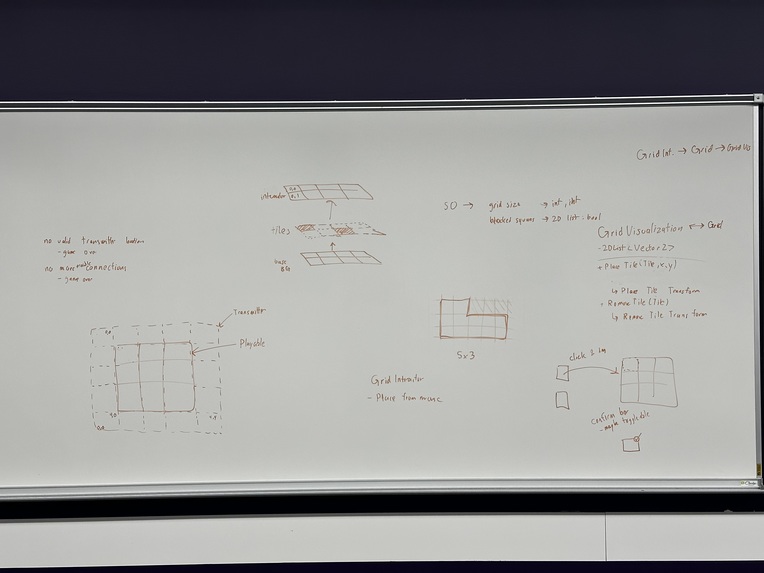 Grid Int. → Grid → Grid Vis
interaction
0,0
0,1
tiles
base
BG
SO → grid size → int, int
blocked squares → 2D list : bool
Grid Visualization ↔ Grid
- 2D List < Vector2 >
+ Place Tile (Tile, x, y)
↳ Place Tile Transform
+ Remove Tile (Tile)
↳ Remove Tile Transform
no valid transmitter locations
- game over
no more connections
- game over
Transmitter
Playable
0,0
5x3
Grid Interactor
- Place from mouse
click & drag
confirm box
- maybe toggleable